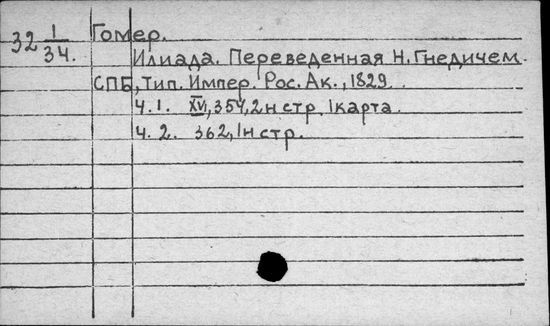 32 1/34. Гомер.
Илиада. Переведенная Н. Гнедичем.
СПБ, Тип. Импер. Рос. Ак., 1829.
Ч. 1. XVI, 354, 2н стр. 1карта
Ч. 2. 362, 1н стр.